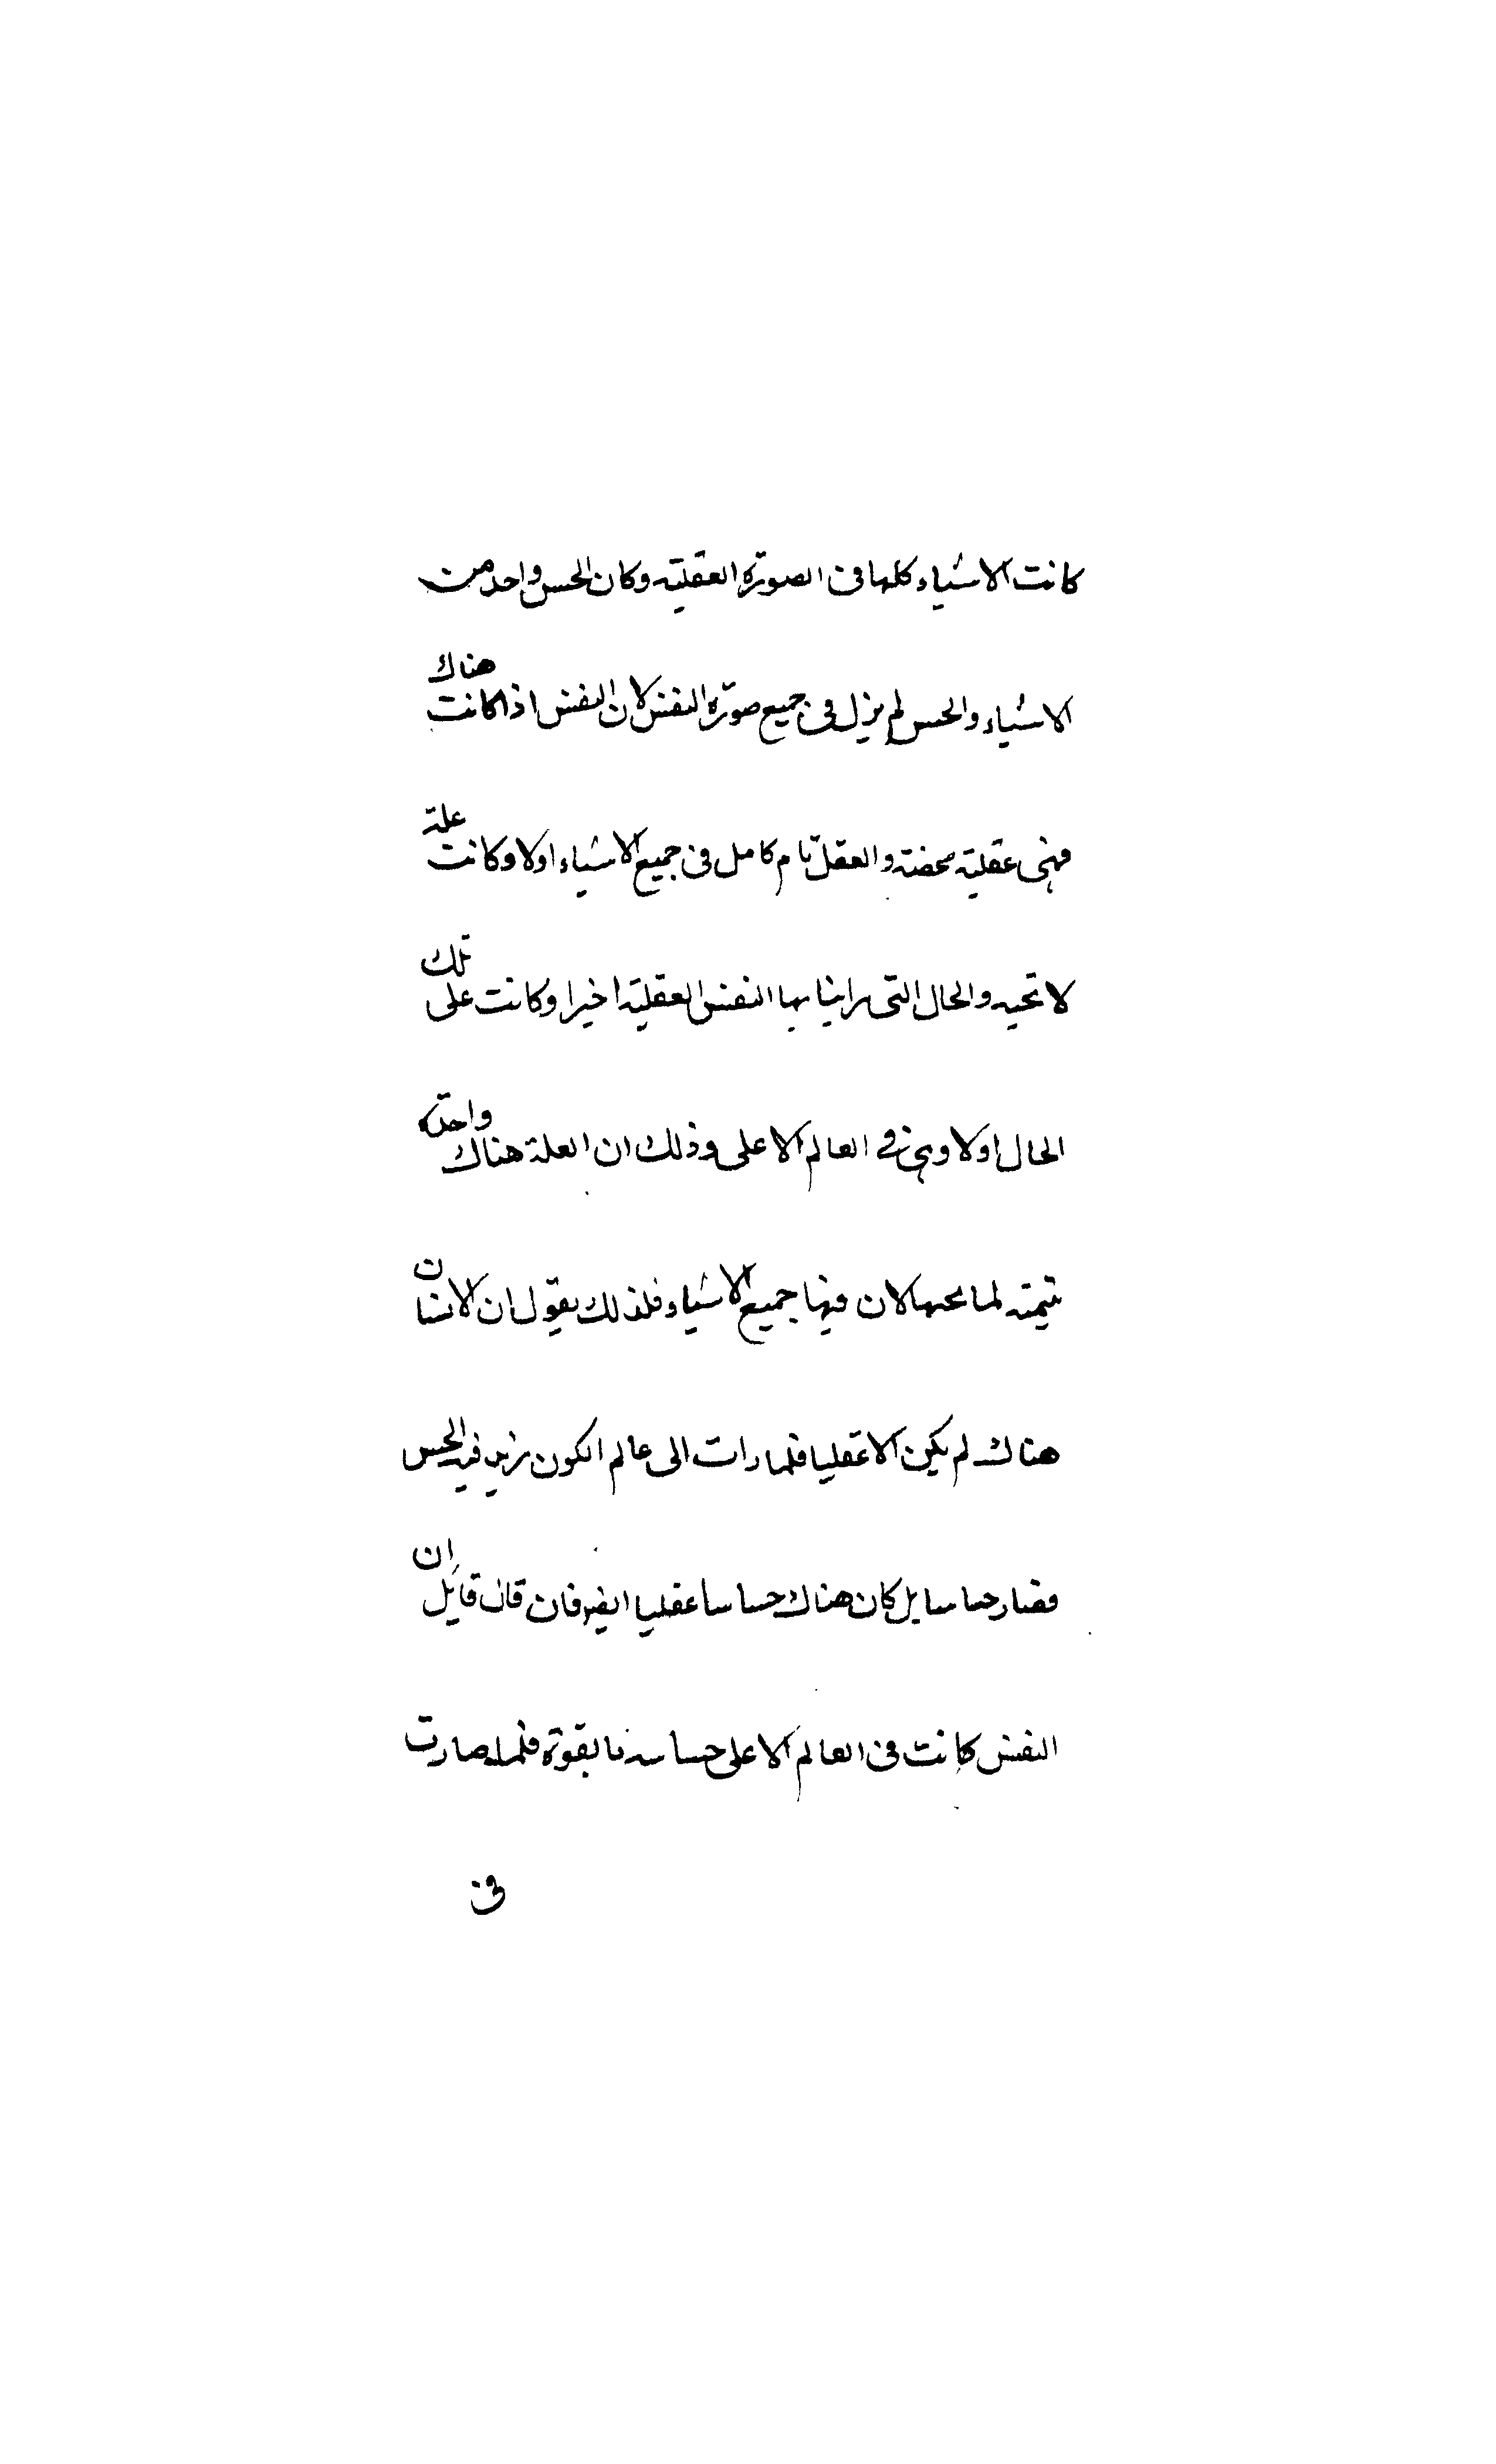 كانت الاشياء كلها فى الصورة العقلية وكان الحس واحد من
الاشياء والحس لم يزل فى جميع صورة النفس لان النفس اذا كانت هناك
فهى عقلية محضة والعقل تام كامل فى جميع الاشياء اولا وكانت علة
لا تحيه والحال التى راينا بها النفس العقلية اخيرا وكانت على تلك
الحال اولا وهى فى العالم الاعلى وذلك ان العلة هناك واحدة
تتيمة لما تحتها لان فيها جميع الاشياء فلذلك يقول ان الانسان
هناك لم يكن الا عقليا فلما رات الى عالم الكون زيد فيه الحس
فصار حساسا بل كان هناك حساسا عقليا ايضا فان قال قائل ان
النفس كانت فى العالم الاعلى حساسة بالقوة فلما صارت
فى